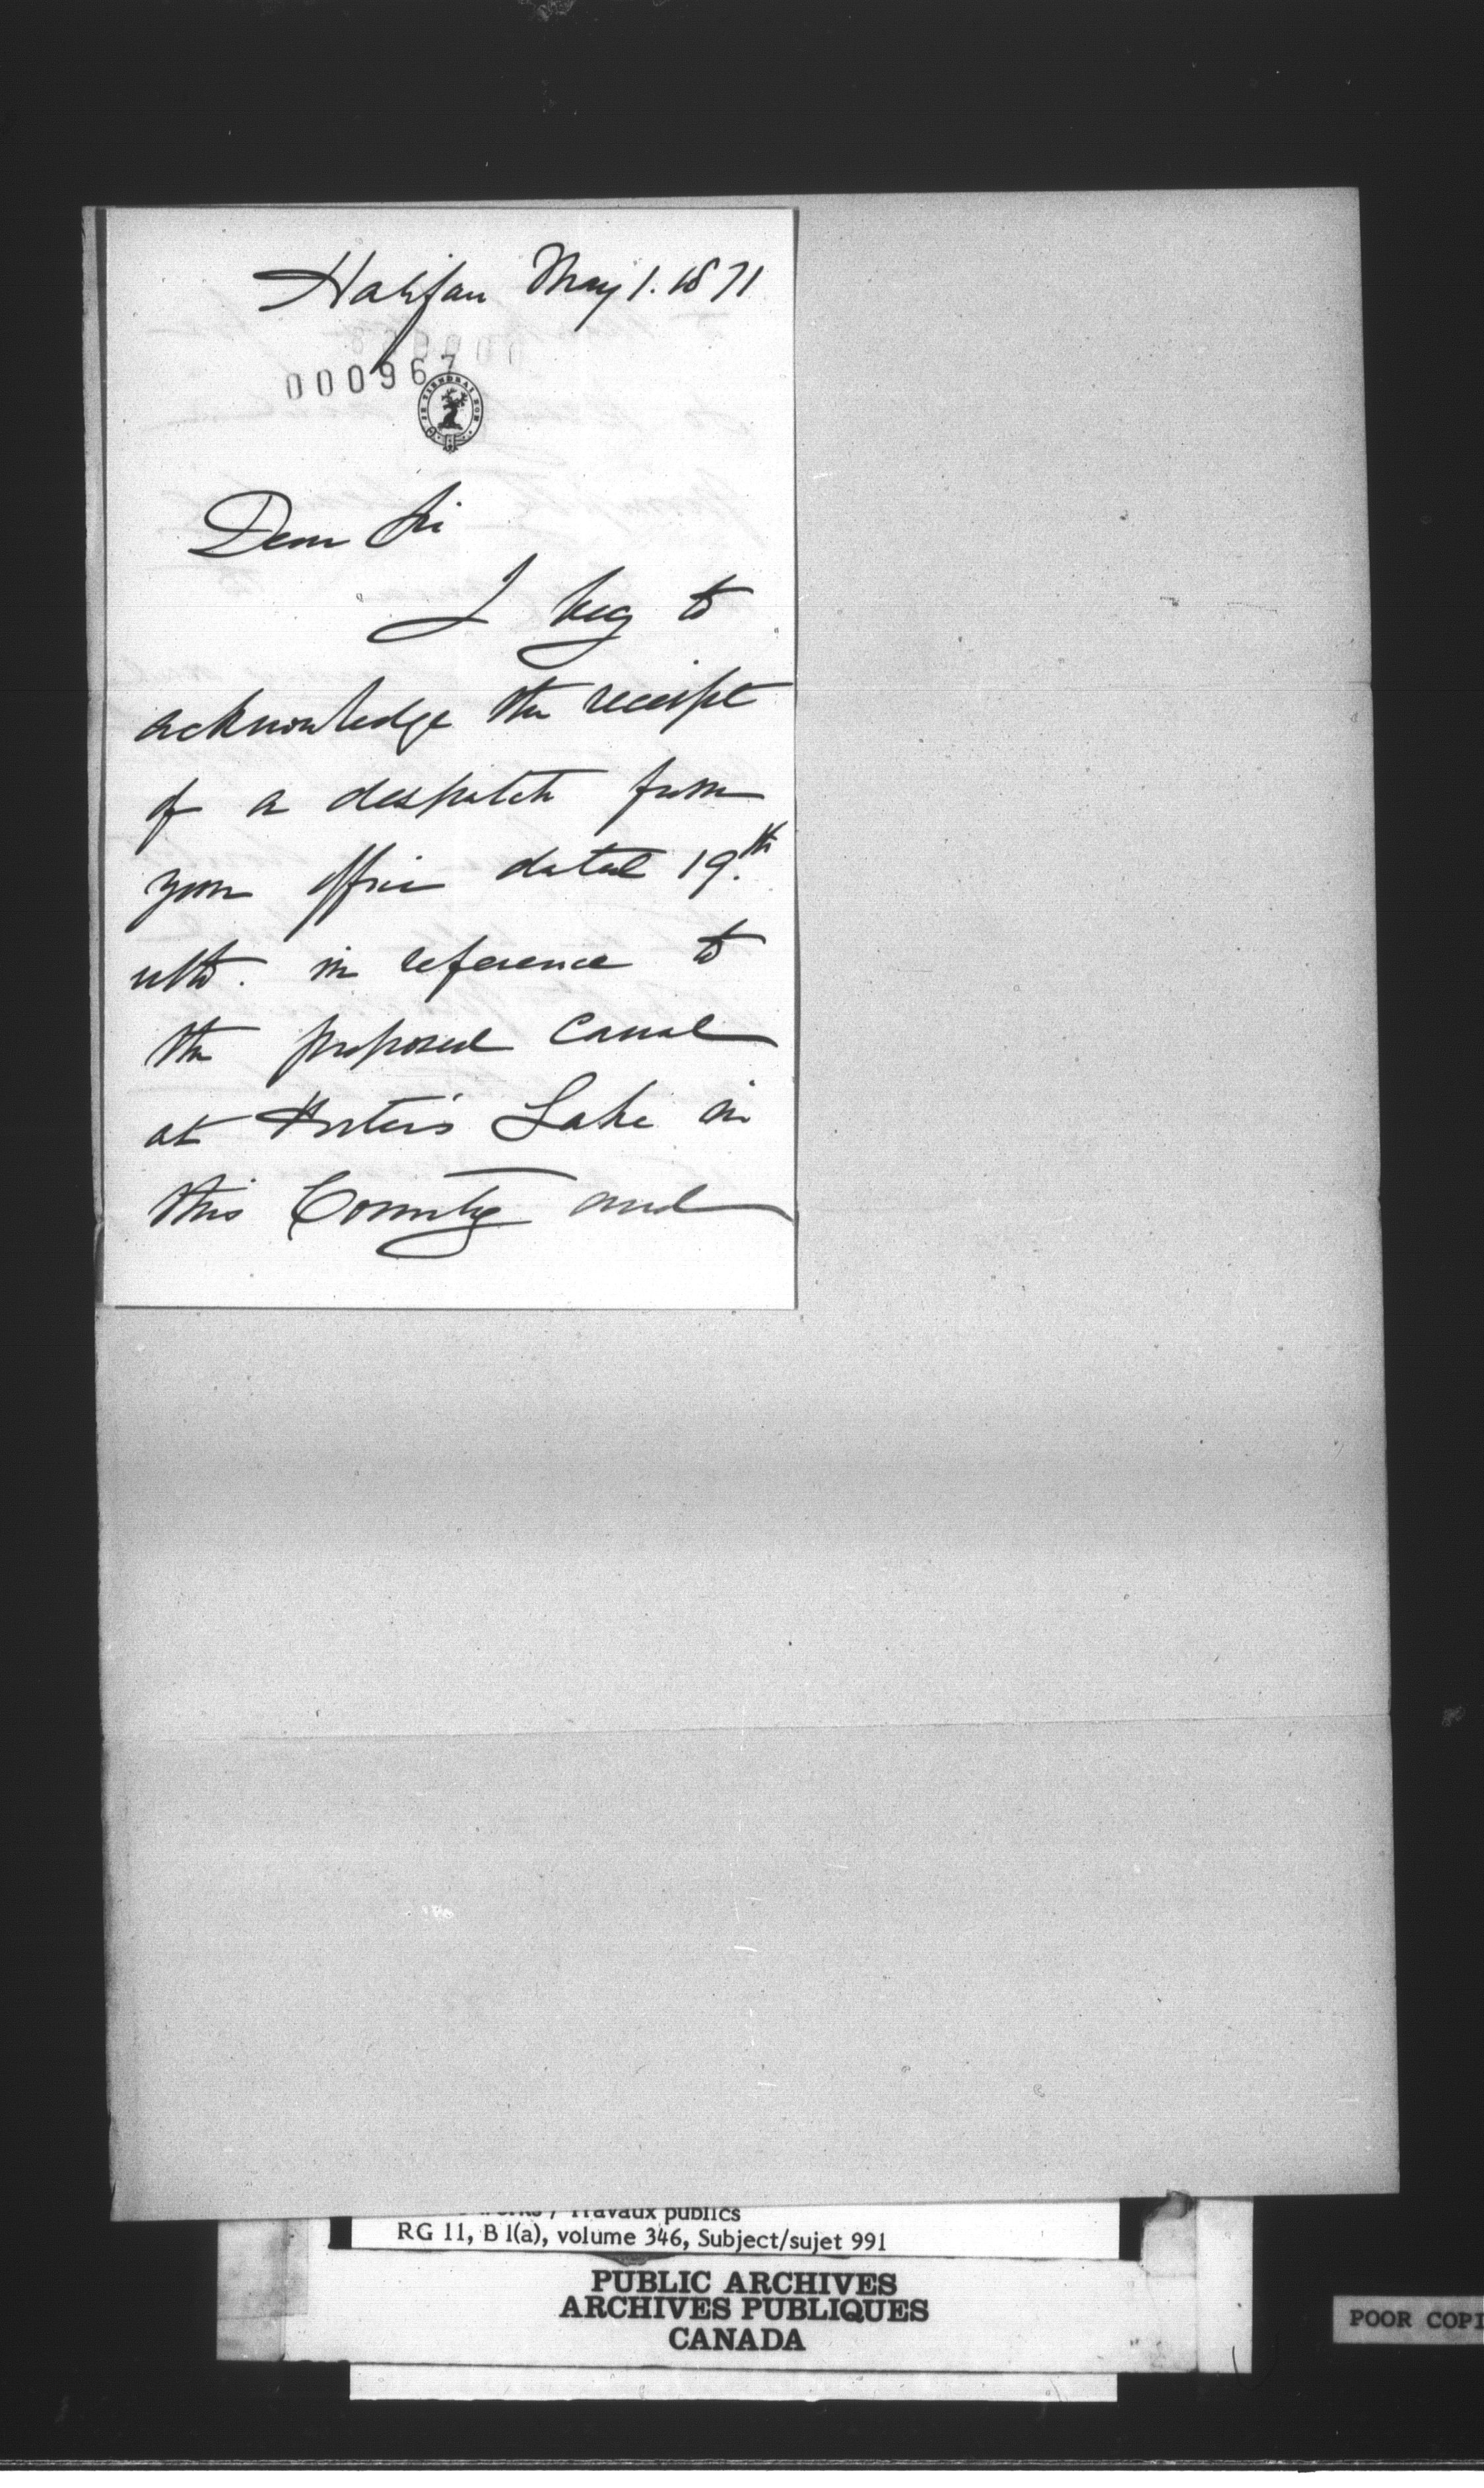 Halifax May 1. 1871
000967
JE TIENDRAI BON
Dear Sir
I beg to
acknowledge the receipt
of a despatch from
your office dated 19.th
ulto. in reference to
the proposed Canal
at Porter's Lake in
this County and
Travaux publics
RG 11, B 1(a), volume 346, Subject/sujet 991
PUBLIC ARCHIVES
ARCHIVES PUBLIQUES
CANADA
POOR COPI